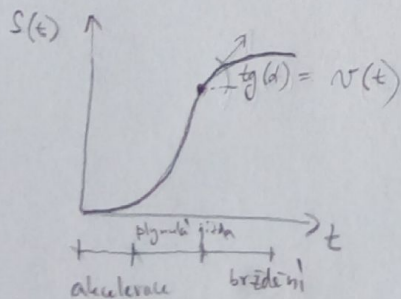 S(t)
tg(α) = v(t)
t
plynulá jízda
akcelerace
brždění